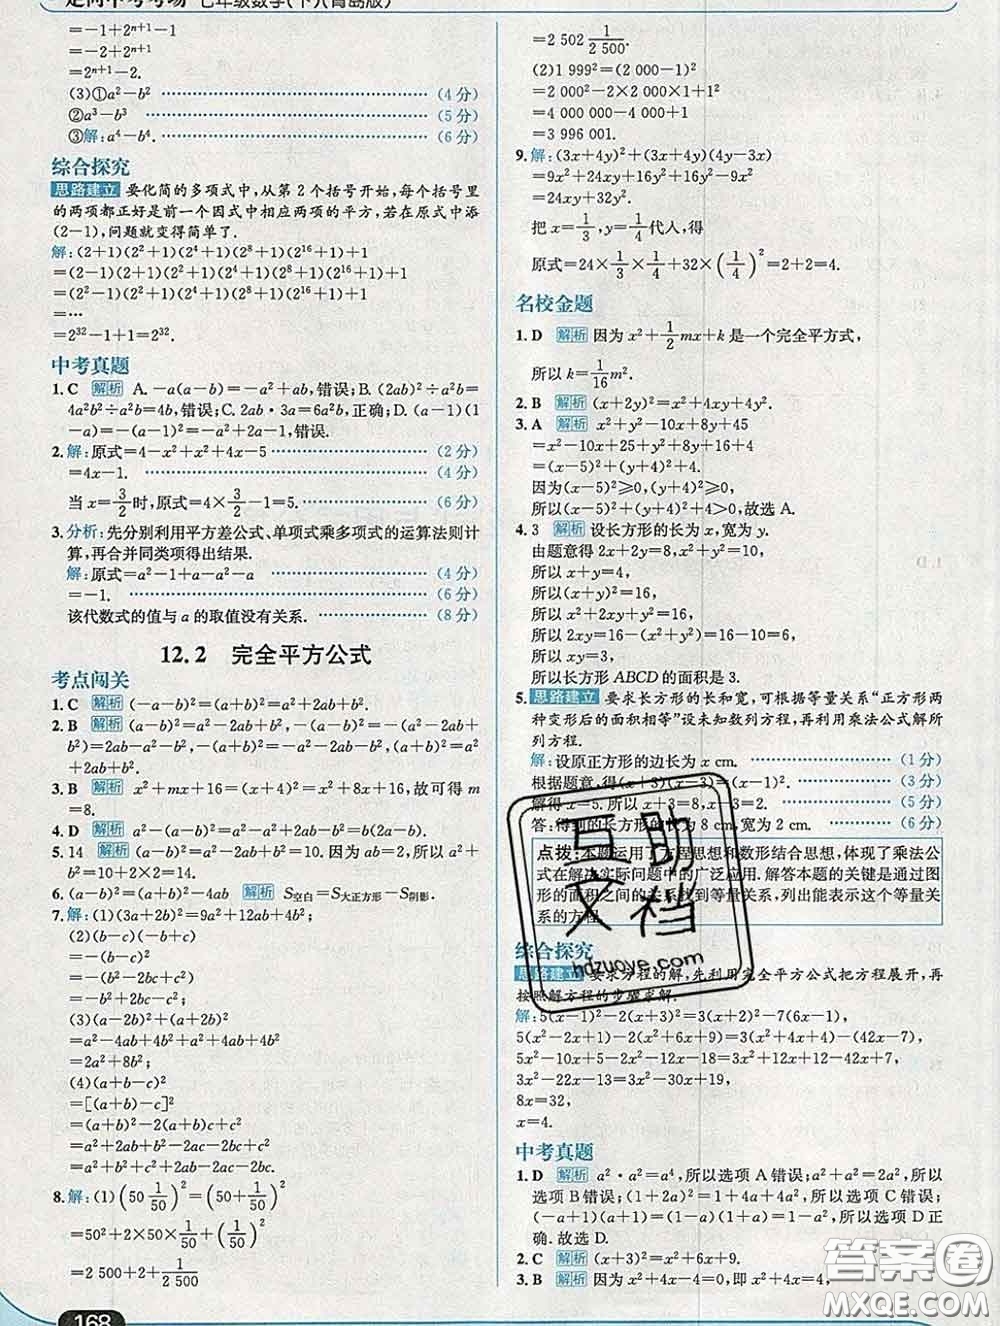 走向中考考场 七年级数学(下)(青岛版)
=-1+2ⁿ⁺¹-1
=-2+2ⁿ⁺¹
=2ⁿ⁺¹-2.
(3)①a²-b² (4分)
②a³-b³ (5分)
③解:a⁴-b⁴. (6分)
综合探究
思路建立 要化简的多项式中,从第2个括号开始,每个括号里
的两项都正好是前一个因式中相应两项的平方,若在原式中添
(2-1),问题就变得简单了.
解:(2+1)(2²+1)(2⁴+1)(2⁸+1)(2¹⁶+1)+1
=(2-1)(2+1)(2²+1)(2⁴+1)(2⁸+1)(2¹⁶+1)+1
=(2²-1)(2²+1)(2⁴+1)(2⁸+1)(2¹⁶+1)+1
=…
=2³²-1+1=2³².
中考真题
1.C 解析 A.-a(a-b)=-a²+ab,错误;B.(2ab)²÷a²b=
4a²b²÷a²b=4b,错误;C.2ab·3a=6a²b,正确;D.(a-1)(1
-a)=-(a-1)²=-a²+2a-1,错误.
2.解:原式=4-x²+x²+4x-5 (2分)
=4x-1. (4分)
当x=3/2时,原式=4×3/2-1=5. (6分)
3.分析:先分别利用平方差公式、单项式乘多项式的运算法则计
算,再合并同类项得出结果.
解:原式=a²-1+a-a²-a (4分)
=-1. (6分)
该代数式的值与a的取值没有关系. (8分)
12.2 完全平方公式
考点闯关
1.C 解析 (-a-b)²=(a+b)²=a²+2ab+b².
2.B 解析 (a-b)²=a²-2ab+b²,-(a-b)²=-(a²-2ab+
b²)=2ab-a²-b²,-(a+b)²=-a²-2ab-b²,(a+b)²=a²
+2ab+b².
3.B 解析 x²+mx+16=(x+4)²=x²+8x+16,故可得m
=8.
4.D 解析 a²-(a-b)²=a²-a²+2ab-b²=b(2a-b).
5.14 解析 (a-b)²=a²-2ab+b²=10.因为ab=2,所以a²+
b²=10+2×2=14.
6.(a-b)²=(a+b)²-4ab 解析 S空白=S大正方形-S阴影.
7.解:(1)(3a+2b)²=9a²+12ab+4b².
(2)(b-c)(-b+c)
=-(b-c)²
=-(b²-2bc+c²)
=-b²+2bc-c²;
(3)(a-2b)²+(a+2b)²
=a²-4ab+4b²+a²+4ab+4b²
=2a²+8b²;
(4)(a+b-c)²
=[(a+b)-c]²
=(a+b)²-2(a+b)c+c²
=a²+2ab+b²-2ac-2bc+c²
=a²+b²+c²+2ab-2ac-2bc.
8.解:(1)(50 1/50)²=(50+1/50)²
=50²+2×50×1/50+(1/50)²
=2 500+2+1/2 500
=2 502 1/2 500.
(2)1 999²=(2 000-1)²
=2 000²-2×2 000×1+1²
=4 000 000-4 000+1
=3 996 001.
9.解:(3x+4y)²+(3x+4y)(4y-3x)
=9x²+24xy+16y²+16y²-9x²
=24xy+32y².
把x=1/3,y=1/4代人,得
原式=24×1/3×1/4+32×(1/4)²=2+2=4.
名校金题
1.D 解析 因为x²+1/2mx+k是一个完全平方式,
所以k=1/16m².
2.B 解析 (x+2y)²=x²+4xy+4y².
3.A 解析 x²+y²-10x+8y+45
=x²-10x+25+y²+8y+16+4
=(x-5)²+(y+4)²+4.
因为(x-5)²≥0,(y+4)²≥0,
所以(x-5)²+(y+4)²+4>0,故选A.
4.3 解析 设长方形的长为x,宽为y.
由题意得2x+2y=8,x²+y²=10,
所以x+y=4,
所以(x+y)²=16,
所以x²+2xy+y²=16,
所以2xy=16-(x²+y²)=16-10=6,
所以xy=3,
所以长方形ABCD的面积是3.
5.思路建立 要求长方形的长和宽,可根据等量关系“正方形两
种变形后的面积相等”设未知数列方程,再利用乘法公式解所
列方程.
解:设原正方形的边长为x cm. (1分)
根据题意,得(x+3)(x-3)=(x-1)². (3分)
解得x=5.所以x+3=8,x-3=2. (5分)
答:得到的长方形的长为8 cm,宽为2 cm. (6分)
点拨:本题运用了方程思想和数形结合思想,体现了乘法公
式在解决实际问题中的广泛应用.解答本题的关键是通过图
形的面积之间的关系找到等量关系,列出能表示这个等量关
系的方程.
综合探究
思路建立 要求方程的解,先利用完全平方公式把方程展开,再
按照解方程的步骤求解.
解:5(x-1)²-2(x+3)²=3(x+2)²-7(6x-1),
5(x²-2x+1)-2(x²+6x+9)=3(x²+4x+4)-(42x-7),
5x²-10x+5-2x²-12x-18=3x²+12x+12-42x+7,
3x²-22x-13=3x²-30x+19,
8x=32,
x=4.
中考真题
1.D 解析 a²·a²=a⁴,所以选项A错误;a²+a²=2a²,所以
选项B错误;(1+2a)²=1+4a+4a²,所以选项C错误;
(-a+1)(a+1)=(1-a)(1+a)=1-a²,所以选项D正
确.故选D.
2.C 解析 (x+3)²=x²+6x+9.
3.B 解析 因为x²-4x+4=0,即x²-4x=-4,
168
互助
文档
hdzuoye.com
答案圈
MXQE.COM